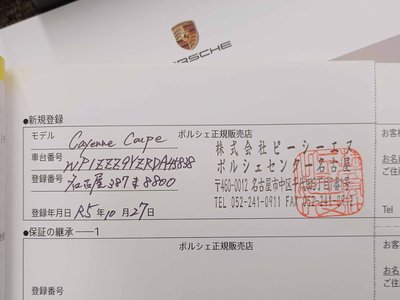 PORSCHE
●新規登録
モデル Cayenne Coupe
ポルシェ正規販売店
お客様
車台番号
株式会社ピーシーエス
登録番号 名古屋 387
ポルシェセンター名古屋
お名前
ご住所
〒460-0012 名古屋市中区千代田5丁目
登録年月日 R5年10月27日
TEL 052-241-0911 FAX 052-241-0911
Tel
●保証の継承——1
お客様
ポルシェ正規販売店
お名前
ご住所